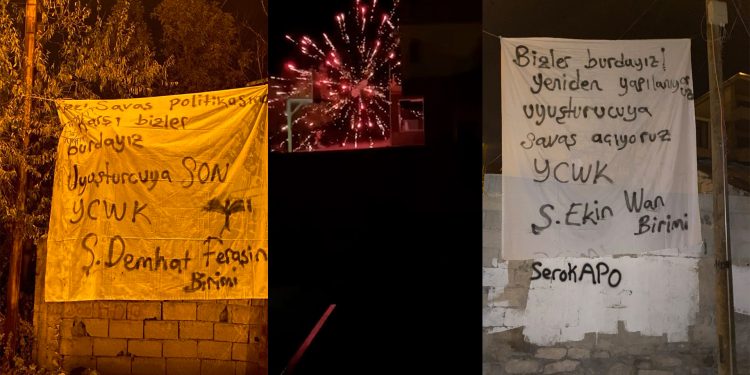 Savaş politikasına
karşı bizler
burdayız
Uyuşturcuya SON
YCWK
Ş. Demhat Ferasin
Birimi
Bizler burdayız!
yeniden yapılanıyoruz
uyuşturucuya
savaş açıyoruz
YCWK
Ş. Ekin Wan
Birimi
SerokAPO